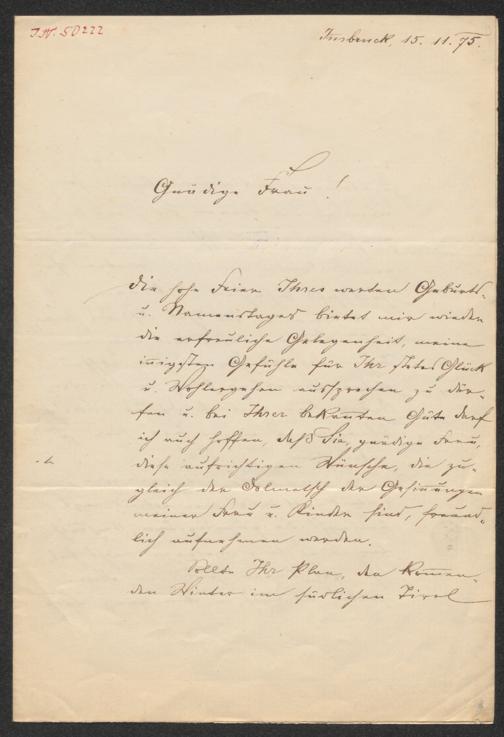 I.N. 50222
Insbruck, 15. 11. 75.
Gnädige Frau!
Die hohe Feier Ihres werten Geburts-
u. Namenstages bietet mir wieder
die erfreuliche Gelegenheit, meine
innigsten Gefühle für Ihr stetes Glück
u. Wohlergehen aussprechen zu dür-
fen u. bei Ihrer bekannten Güte darf
ich auch hoffen, daß Sie, gnädige Frau,
diese aufrichtigen Wünsche, die zu-
gleich der Dolmetsch der Gesinnungen
meiner Frau u. Kinder sind, freund-
lich aufnehmen werden.
Sollte Ihr Plan, den kommen-
den Winter im südlichen Tirol